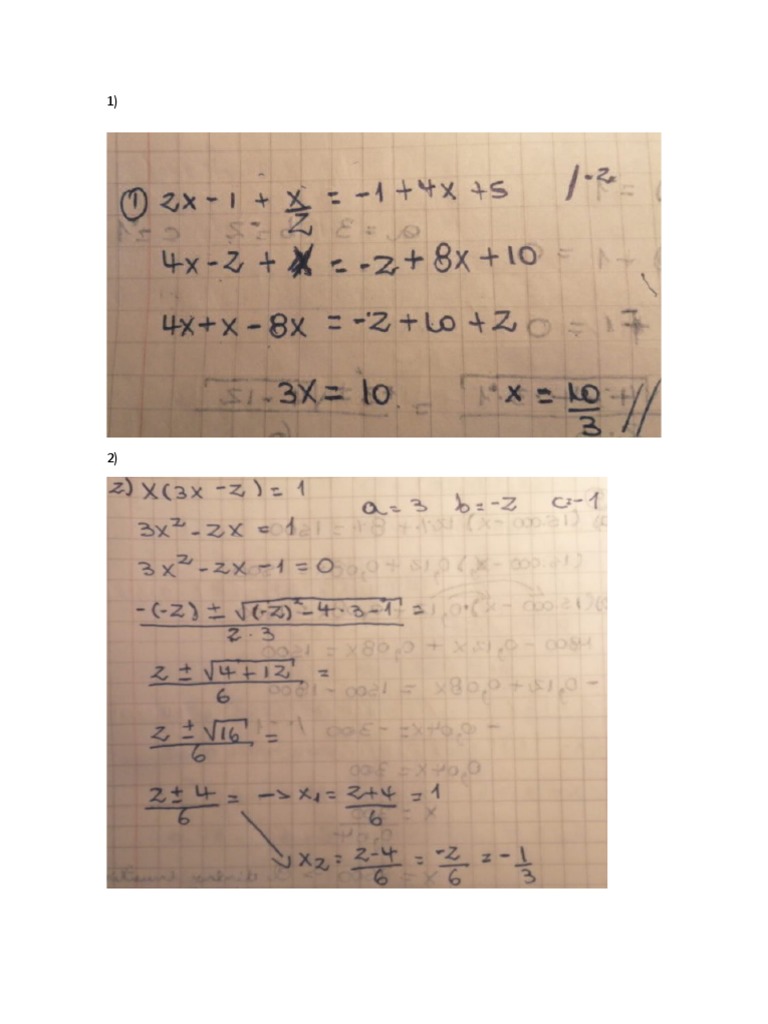 1)
① 2x - 1 + x/2 = -1 + 4x + 5 /·2
4x - 2 + x = -2 + 8x + 10
4x + x - 8x = -2 + 10 + 2
3x = 10 x = 10/3 //
2)
2) x(3x - 2) = 1
a = 3 b = -2 c = -1
3x² - 2x = 1
3x² - 2x - 1 = 0
-(-2) ± √(-2)² - 4·3-1 / 2·3 =
2 ± √4 + 12 / 6 =
2 ± √16 / 6 =
2 ± 4 / 6 = -> x₁ = 2+4 / 6 = 1
x₂ = 2-4 / 6 = -2/6 = -1/3